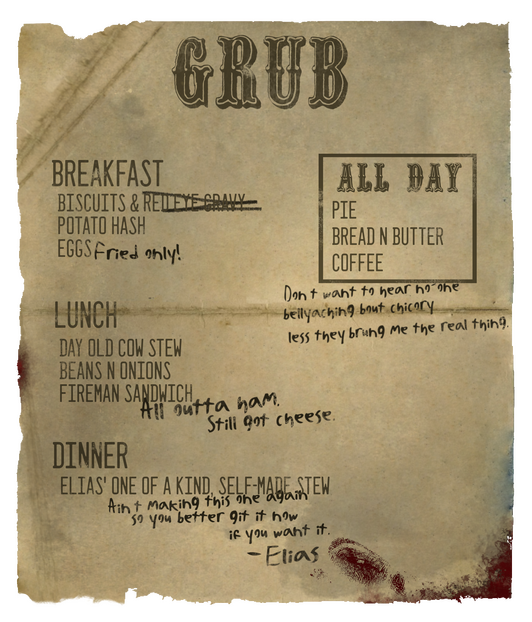 GRUB
BREAKFAST
BISCUITS & RED EYE GRAVY
POTATO HASH
EGGS Fried only!
ALL DAY
PIE
BREAD N BUTTER
COFFEE
Don't want to hear no one
bellyaching bout chicory
less they bring me the real thing.
LUNCH
DAY OLD COW STEW
BEANS N ONIONS
FIREMAN SANDWICH
All outta ham.
Still got cheese.
DINNER
ELIAS' ONE OF A KIND, SELF-MADE STEW
Ain't making this one again
so you better git it now
if you want it.
- Elias